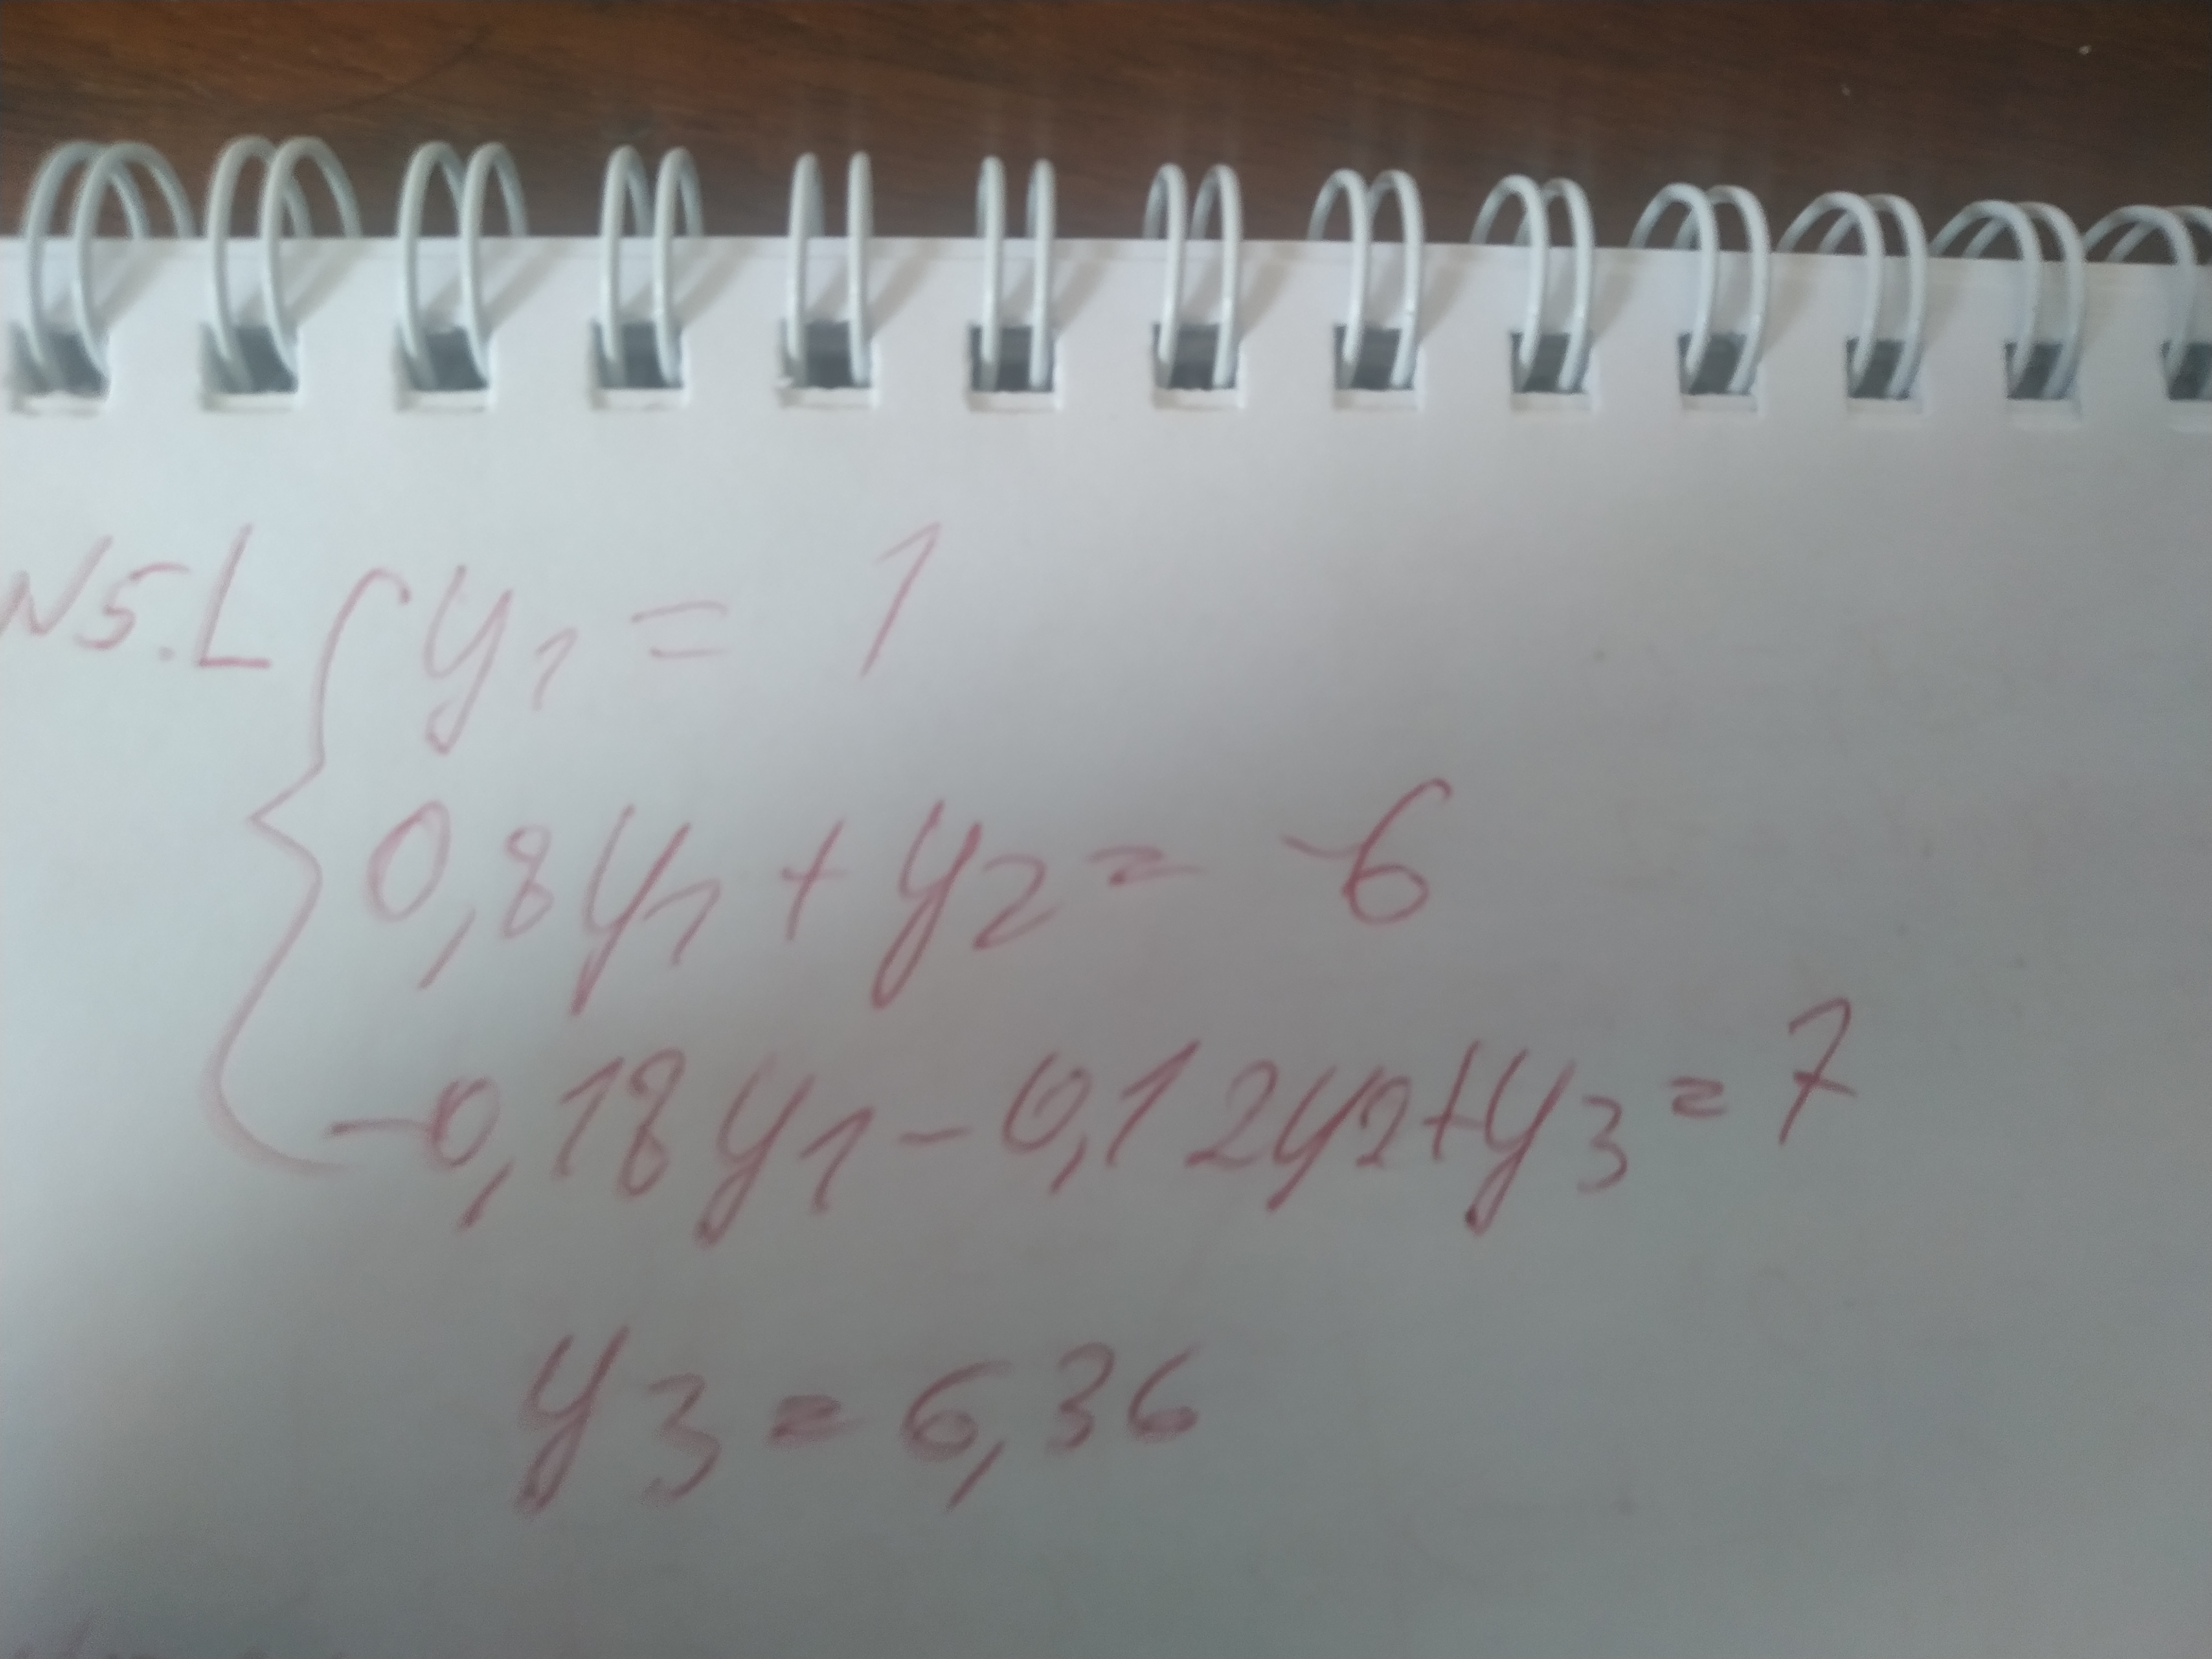 N5.L { y1 = 1
0,8y1 + y2 = -6
-0,18y1 - 0,12y2 + y3 = 7
y3 = 6,36